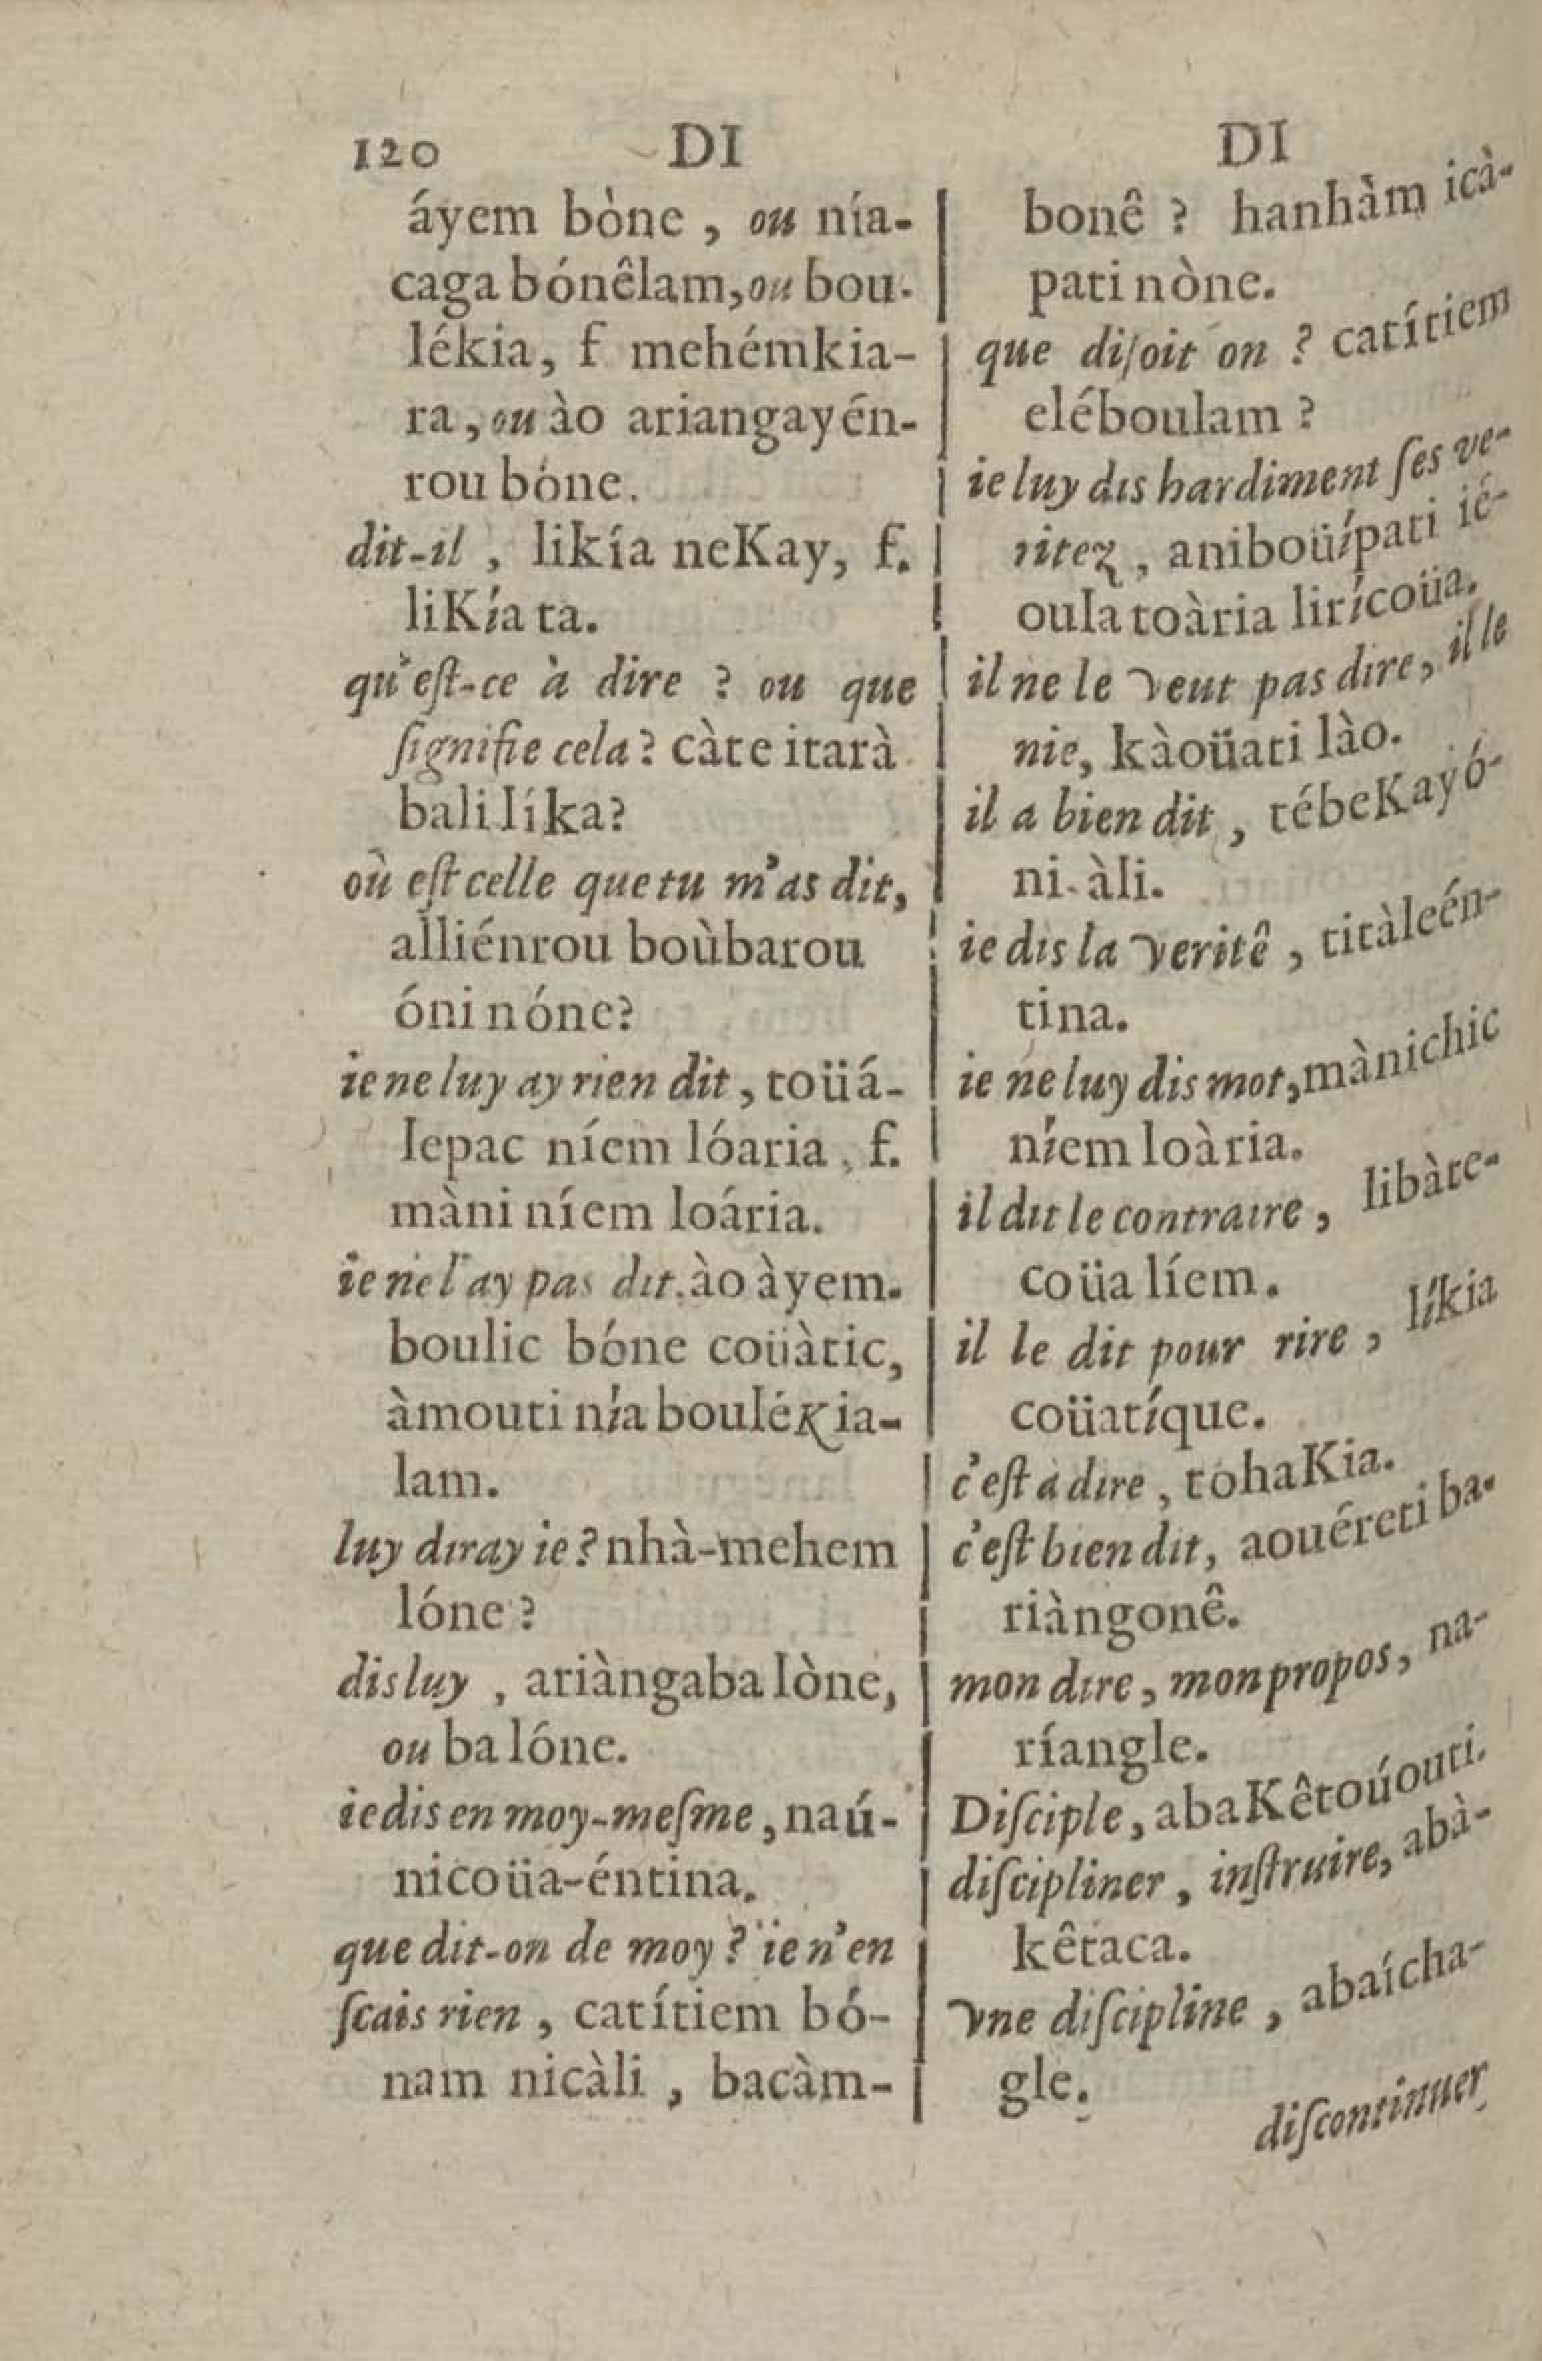 120 DI DI
áyem bòne, ou nía-
caga bónêlam, ou bou-
lékia, f mehémkia-
ra, ou ào ariangayén-
rou bóne.
dit-il, likía neKay, f.
liKía ta.
qu'eſt-ce à dire ? ou que
ſignifie cela ? càte itarà
balilíka?
où eſt celle que tu m'as dit,
alliénrou boùbarou
óni nóne?
ie ne luy ay rien dit, toüá-
lepac níem lóaria, f.
màni níem loária.
ie ne l'ay pas dit. ào àyem-
boulic bóne coüàtic,
àmouti nía bouléKia-
lam.
luy diray ie ? nhà-mehem
lóne ?
dis luy, ariàngaba lòne,
ou ba lóne.
ie dis en moy-meſme, naú-
nicoüa-éntina.
que dit-on de moy ? ie n'en
ſcais rien, catítiem bó-
nam nicàli, bacàm-
bonê ? hanhàm icà-
pati nòne.
que diſoit on ? catítiem
eléboulam ?
ie luy dis hardiment ſes ve-
ritez, aniboüípati ié-
oula toària lirícoüa.
il ne le veut pas dire, il le
nie, kàoüati lào.
il a bien dit, tébeKay ó-
ni-àli.
ie dis la veritê, titàleén-
tina.
ie ne luy dis mot, mànichic
níem loària.
il dit le contraire, libàte-
coüa líem.
il le dit pour rire, líkia
coüatíque.
c'eſt à dire, tohaKia.
c'eſt bien dit, aouéreti ba-
riàngonê.
mon dire, mon propos, na-
ríangle.
Diſciple, abaKêtoúouti.
diſcipliner, inſtruire, abà-
kêtaca.
vne diſcipline, abaícha-
gle.
diſcontinuer